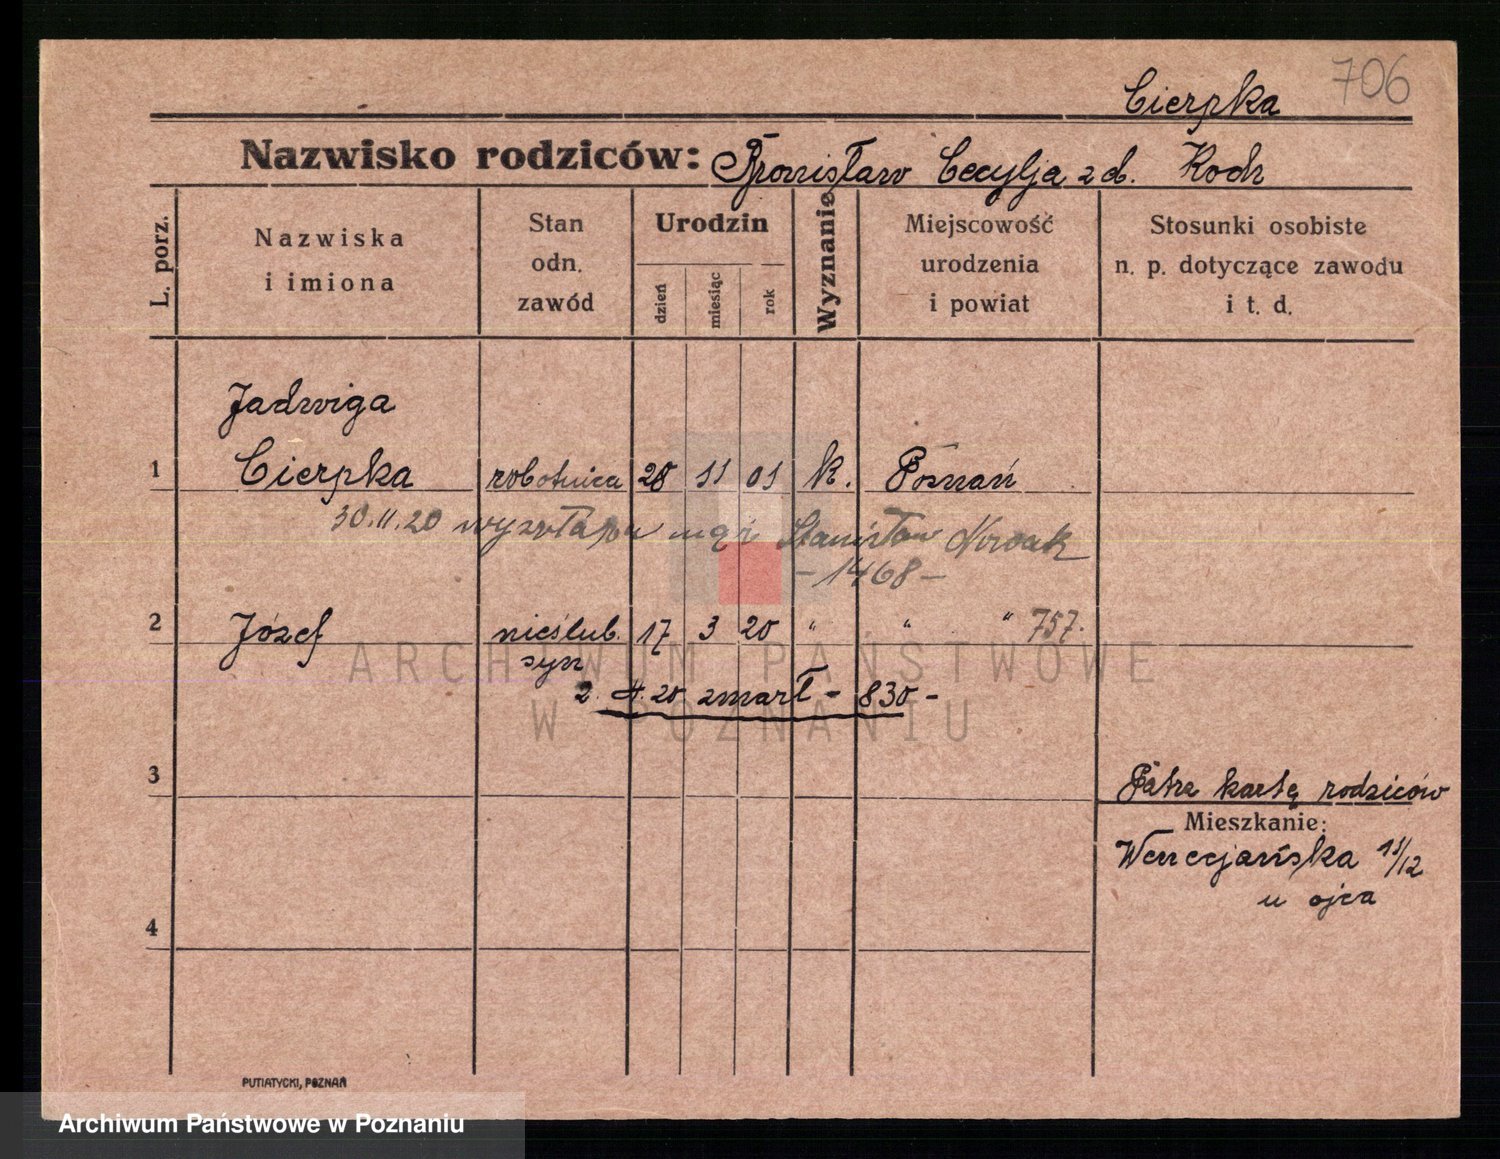 706
Cierpka
Nazwisko rodziców: Bronisław Cecylja z d. Koch
L. porz.
Nazwiska
i imiona
Stan
odn.
zawód
Urodzin
dzień
miesiąc
rok
Wyznanie
Miejscowość
urodzenia
i powiat
Stosunki osobiste
n. p. dotyczące zawodu
i t. d.
Jadwiga
1 Cierpka robotnica 28 11 01 k. Poznań
30.11.20 mąż Stanisław Nowak
-1468-
2 Józef nieślub. 17 3 20 " " " 757.
syn
2. 4. 20 zmarł - 830 -
3
Patrz kartę rodziców
Mieszkanie:
Wenecjańska 11/12
u ojca
4
PUTIATYCKI, POZNAŃ
ARCHIWUM PAŃSTWOWE
W POZNANIU
Archiwum Państwowe w Poznaniu